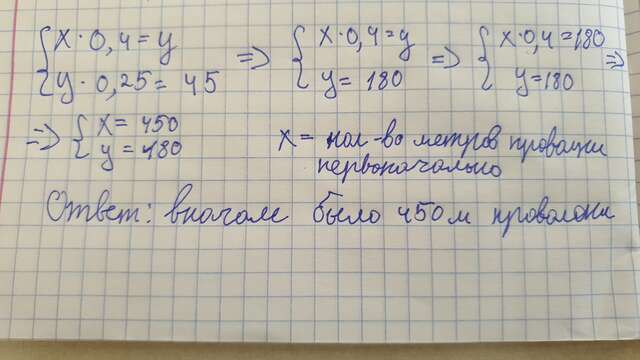 { x · 0,4 = y
{ y · 0,25 = 45 => { x · 0,4 = y
{ y = 180 => { x · 0,4 = 180
{ y = 180 =>
=> { x = 450
{ y = 180
x = кол-во метров проволки
первоначально
Ответ: вначале было 450 м проволоки